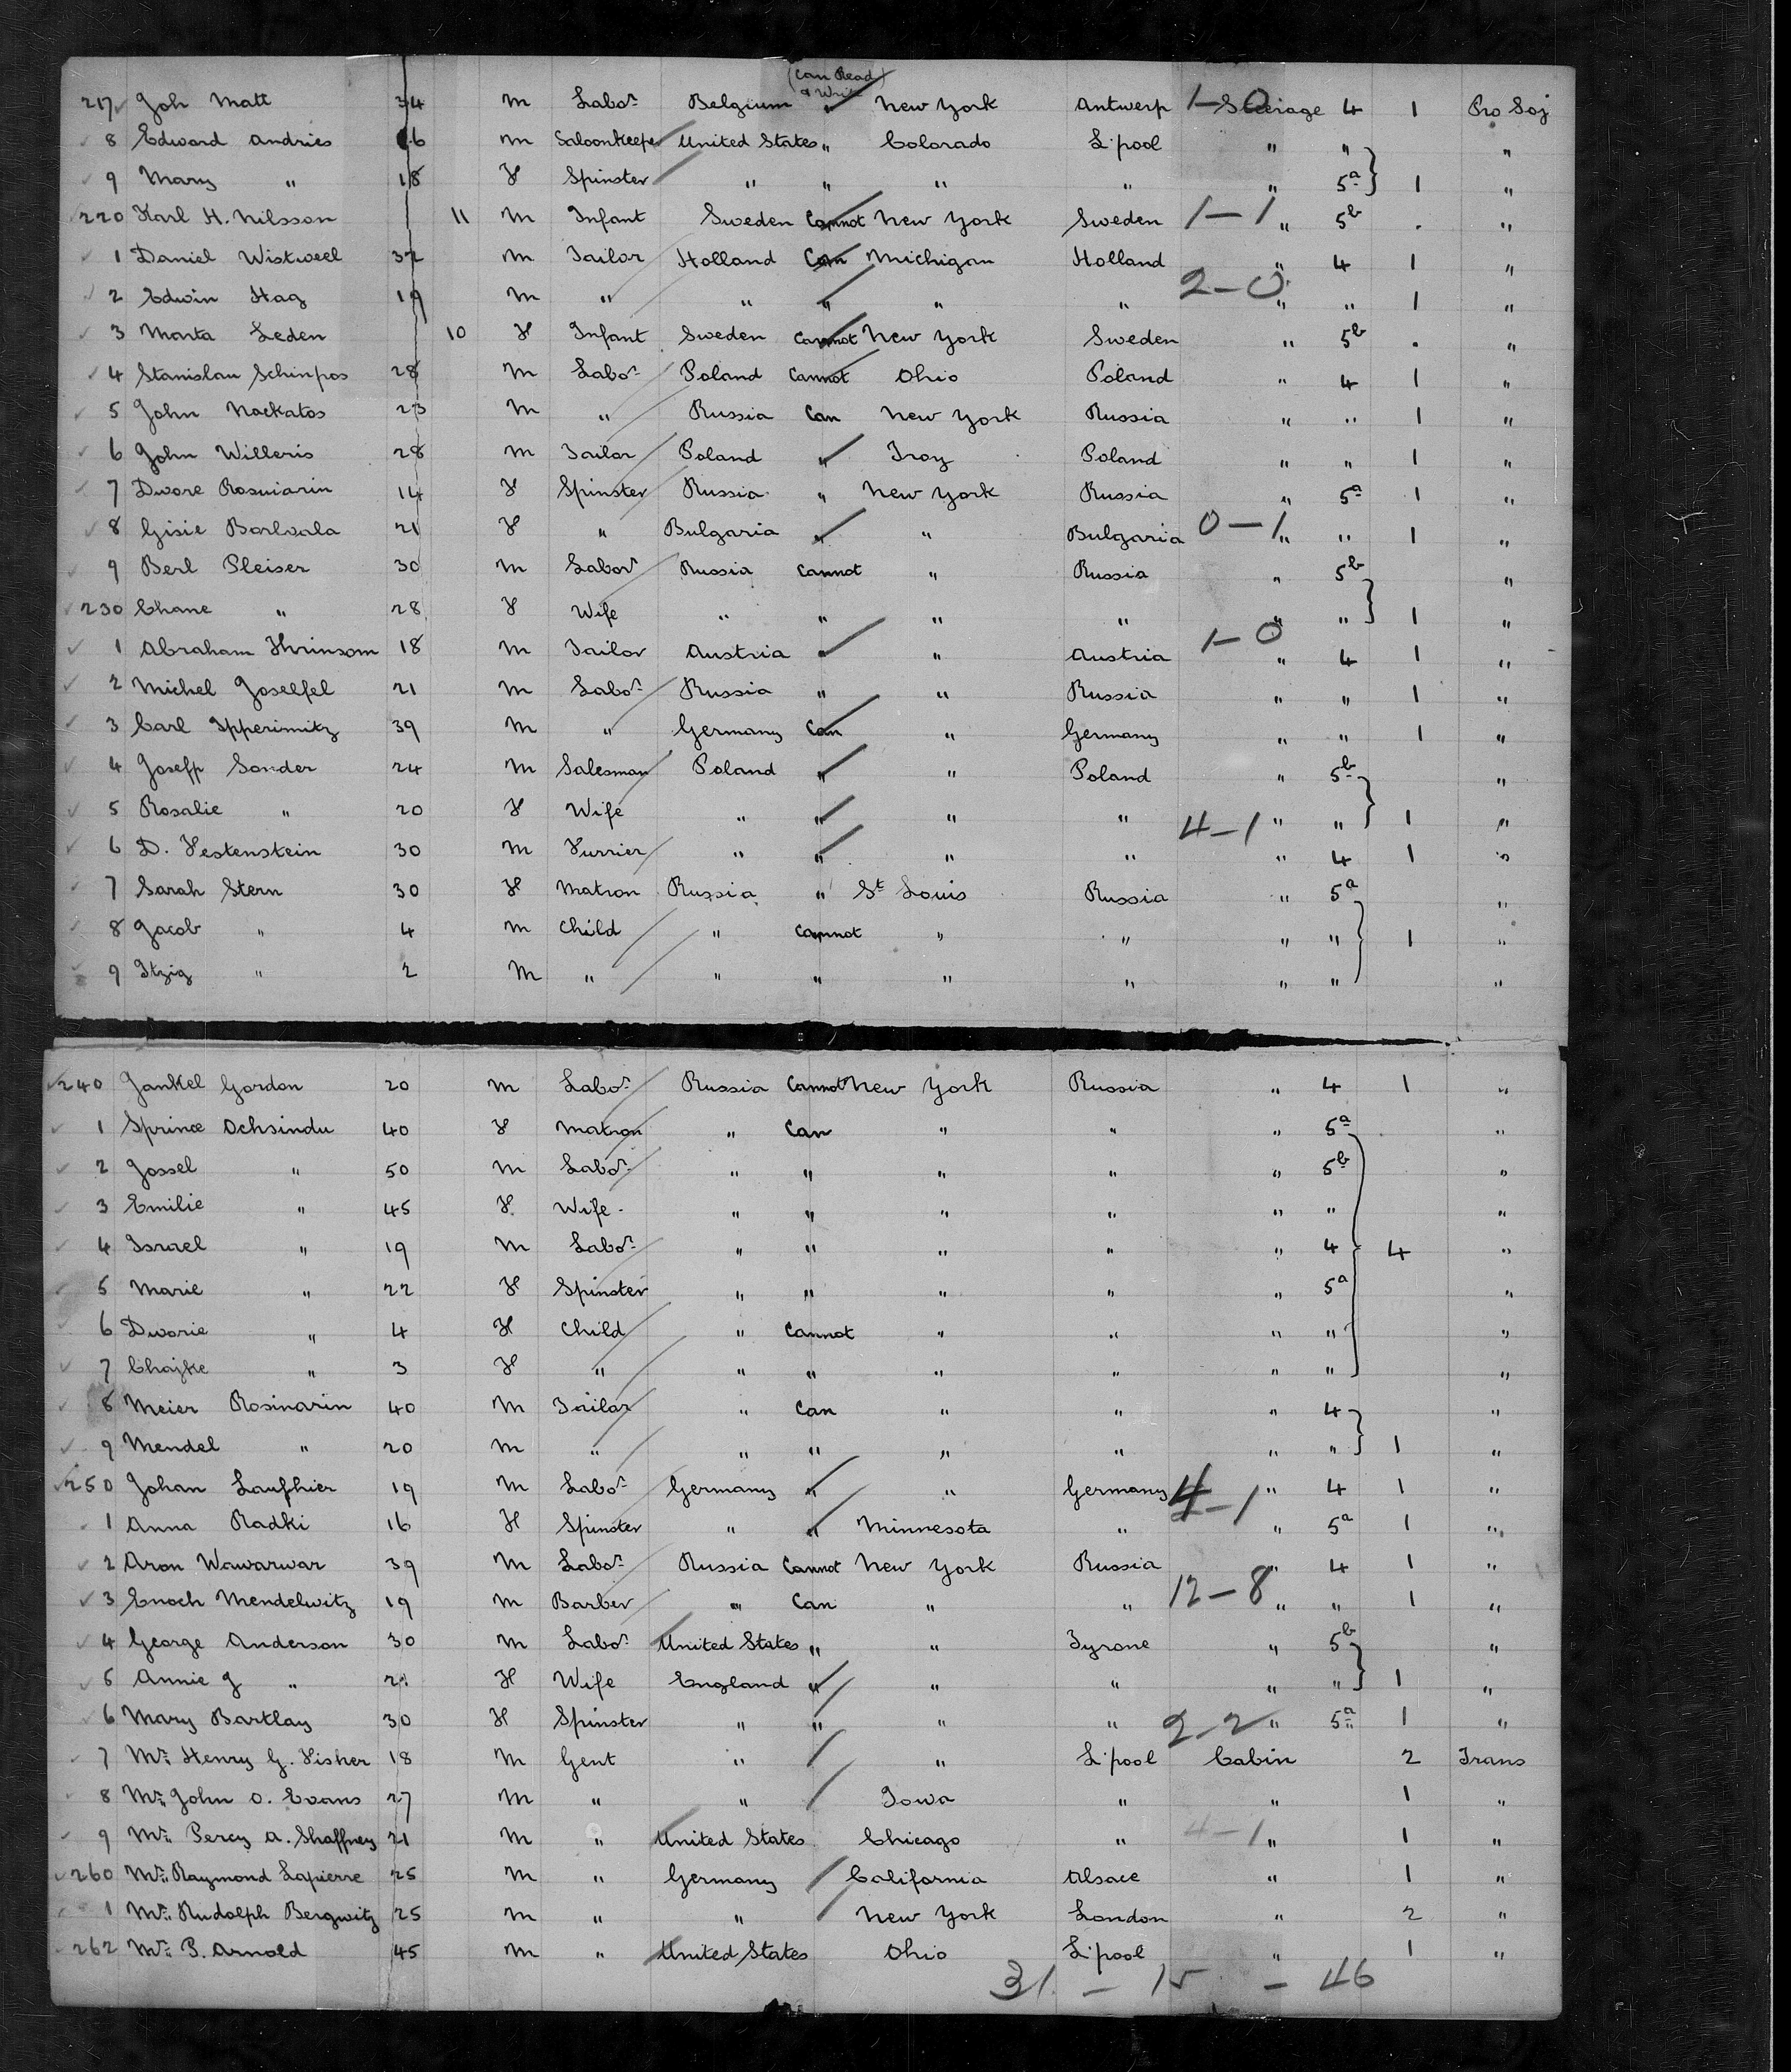 (Can Read & Write)
217 Joh Matt 34 M Labor Belgium " New York Antwerp 1-0 Steerage 4 1 Pro Soj
8 Edward Andries M Saloonkeeper United States " Colorado L'pool " " "
9 Mary " 18 F Spinster " " " " " 5a 1 "
220 Karl H. Nilsson 11 M Infant Sweden Cannot New York Sweden 1-1 " 5b . "
1 Daniel Wistweel 32 M Tailor Holland Can Michigan Holland " 4 1 "
2 Edwin Hag 19 M " " " " " 2-0 " " 1 "
3 Marta Leden 10 F Infant Sweden Cannot New York Sweden " 5b . "
4 Stanislau Schinpos 28 M Labor Poland Cannot Ohio Poland " 4 1 "
5 John Nackatos 23 M " Russia Can New York Russia " " 1 "
6 John Willeris 28 M Tailor Poland " Troy Poland " " 1 "
7 Dwore Rosiniarin 14 F Spinster Russia " New York Russia " 5a 1 "
8 Gisie Barlvala 21 F " Bulgaria " " Bulgaria 0-1 " " 1 "
9 Berl Pleiser 30 M Labor Russia Cannot " Russia " 5b "
230 Chane " 28 F Wife " " " " " " 1 "
1 Abraham Hrinsom 18 M Tailor Austria " " Austria 1-0 " 4 1 "
2 Michel Joselfel 21 M Labor Russia " " Russia " " 1 "
3 Carl Ipperimitz 39 M " Germany Can " Germany " " 1 "
4 Josefp Sonder 24 M Salesman Poland " " Poland " 5b "
5 Rosalie " 20 F Wife " " " " 4-1 " " 1 "
6 D. Festenstein 30 M Furrier " " " " " 4 1 "
7 Sarah Stern 30 F Matron Russia " St Louis Russia " 5a "
8 Jacob " 4 M Child " Cannot " " " " 1 "
9 Itzig " 2 M " " " " " " " "
240 Jankel Gordon 20 M Labor Russia Cannot New York Russia " 4 1 "
1 Sprince Ochsindu 40 F Matron " Can " " " 5a "
2 Jossel " 50 M Labor " " " " " 5b "
3 Emilie " 45 F Wife " " " " " " "
4 Israel " 19 M Labor " " " " " 4 4 "
5 Marie " 22 F Spinster " " " " " 5a "
6 Dworie " 4 F Child " Cannot " " " " "
7 Chajke " 3 F " " " " " " " "
8 Meier Rosinarin 40 M Tailor " Can " " " 4 "
9 Mendel " 20 M " " " " " " " 1 "
250 Johan Laufhier 19 M Labor Germany " " Germany 4-1 " 4 1 "
1 Anna Radki 16 F Spinster " " Minnesota " " 5a 1 "
2 Aron Wawarwar 39 M Labor Russia Cannot New York Russia " 4 1 "
3 Enoch Mendelwitz 19 M Barber " Can " " 12-8 " " 1 "
4 George Anderson 30 M Labor United States " " Tyrone " 5b "
5 Annie J " F Wife England " " " " " 1 "
6 Mary Bartlay 30 F Spinster " " " " 2-2 " 5a 1 "
7 Mr Henry G. Fisher 18 M Gent " " L'pool Cabin 2 Trans
8 Mr John O. Evans 27 M " " Iowa " " 1 "
9 Mr Percy A. Shaffney 21 M " United States Chicago " 4-1 " 1 "
260 Mr Raymond Lapierre 25 M " Germany California Alsace " 1 "
1 Mr Rudolph Bergwitz 25 M " " New York London " 2 "
262 Mr P. Arnold 45 M " United States Ohio L'pool " 1 "
31 - 15 - 46